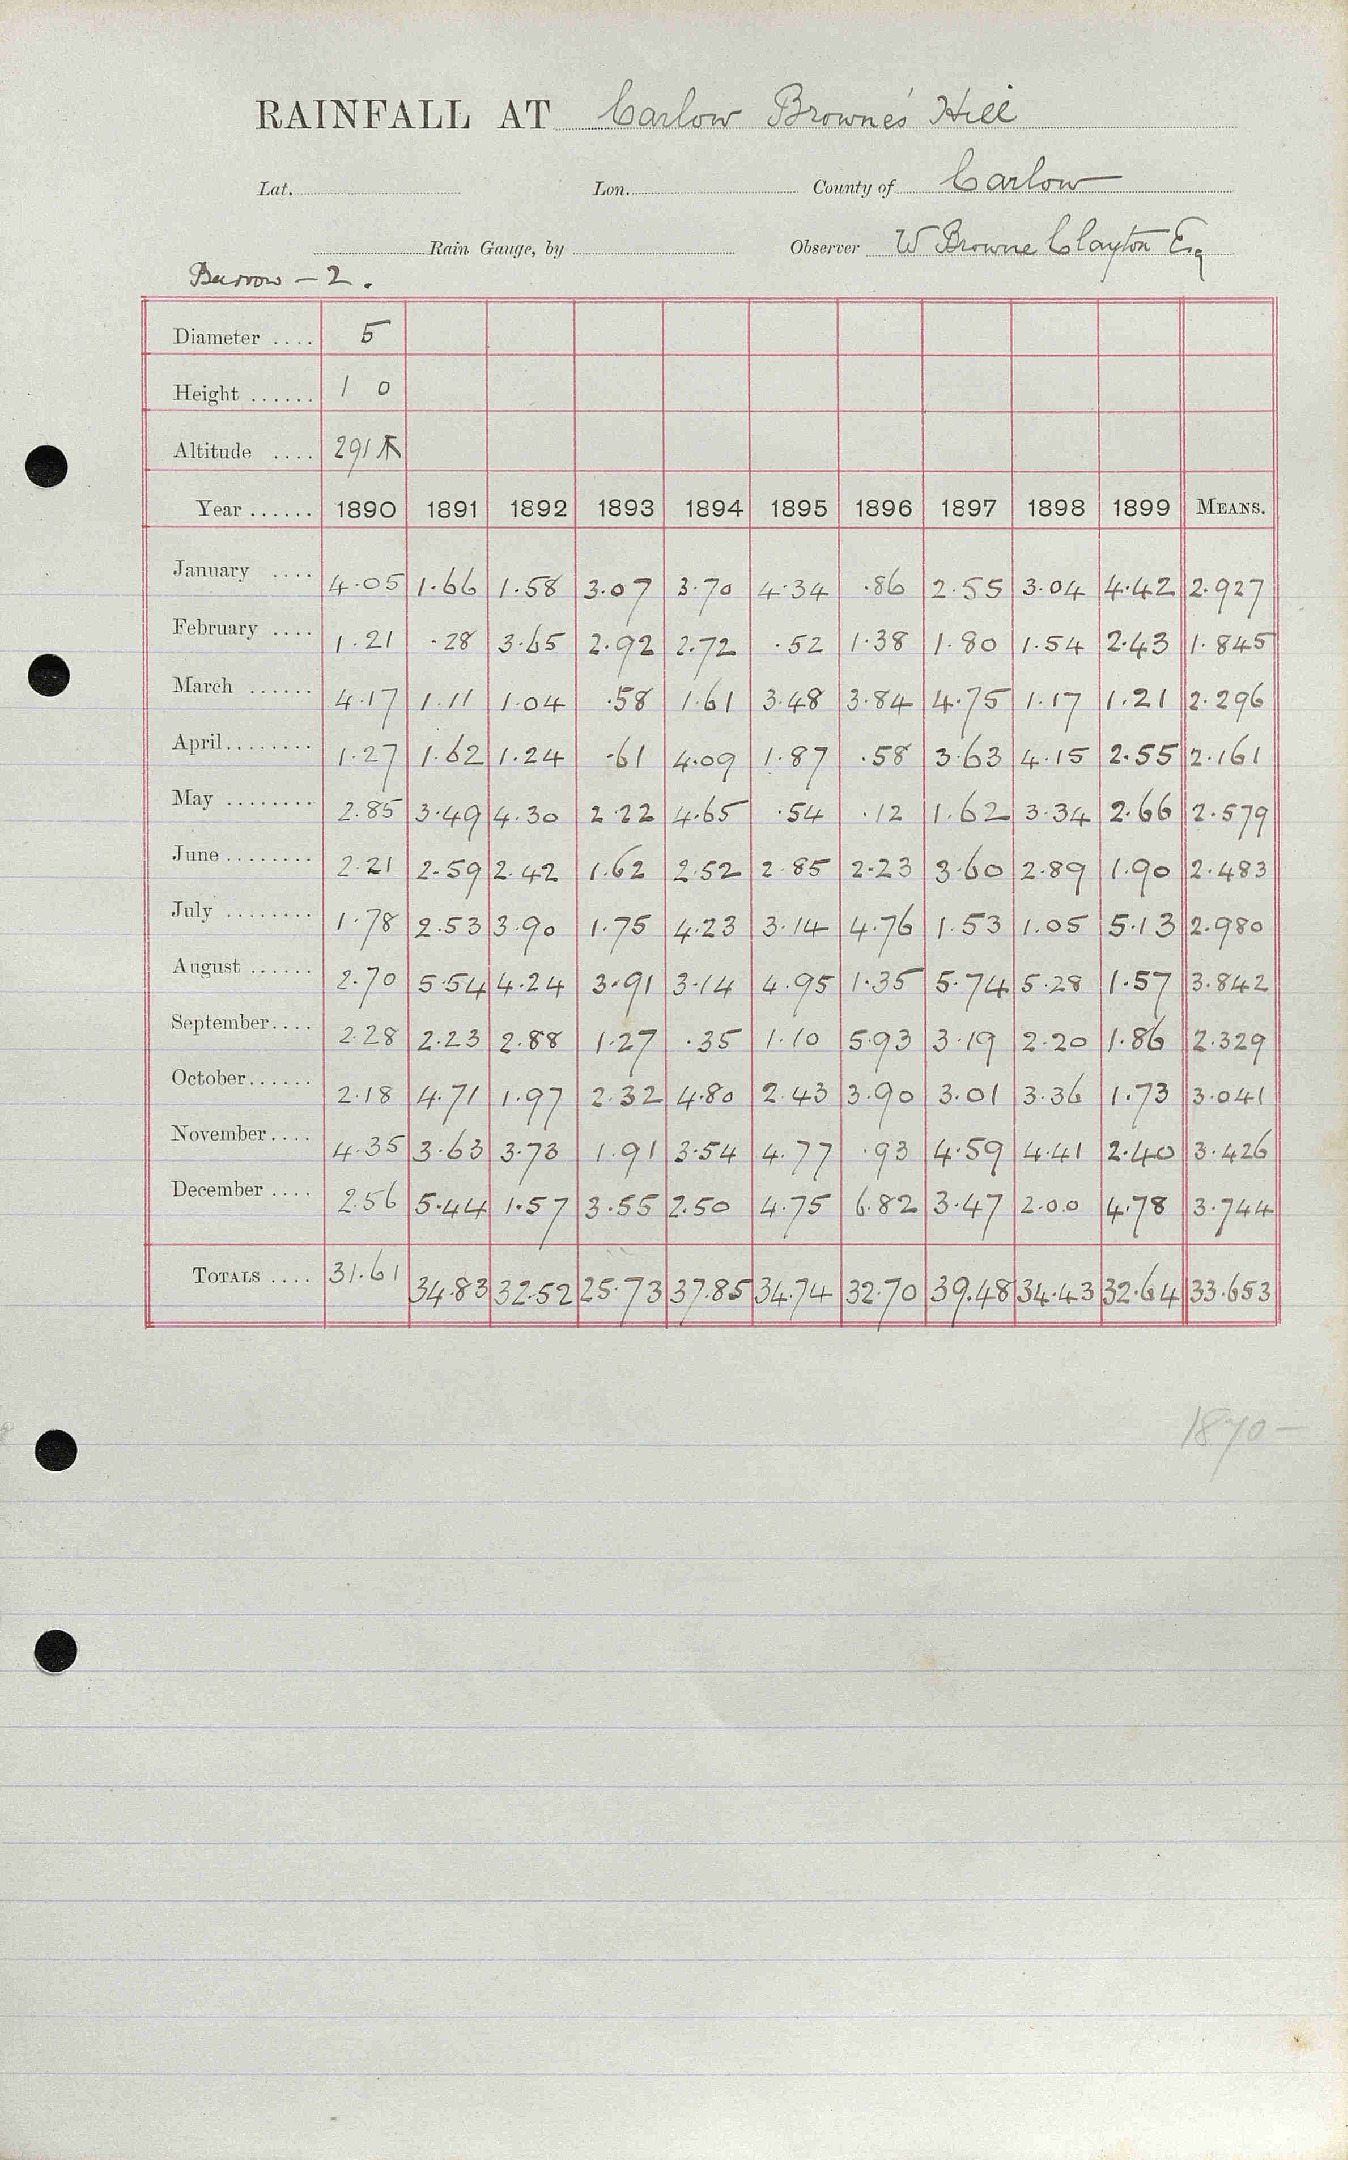 RAINFALL AT Carlow Browne's Hill
Lat. Lon. County of Carlow
Rain Gauge, by Observer W Browne Clayton Esq
Barrow - 2.
Diameter .... 5
Height ...... 1 0
Altitude .... 291
Year ...... 1890 1891 1892 1893 1894 1895 1896 1897 1898 1899 MEANS.
January .... 4.05 1.66 1.58 3.07 3.70 4.34 .86 2.55 3.04 4.42 2.927
February .... 1.21 .28 3.65 2.92 2.72 .52 1.38 1.80 1.54 2.43 1.845
March ...... 4.17 1.11 1.04 .58 1.61 3.48 3.84 4.75 1.17 1.21 2.296
April ........ 1.27 1.62 1.24 .61 4.09 1.87 .58 3.63 4.15 2.55 2.161
May ........ 2.85 3.49 4.30 2.22 4.65 .54 .12 1.62 3.34 2.66 2.579
June ........ 2.21 2.59 2.42 1.62 2.52 2.85 2.23 3.60 2.89 1.90 2.483
July ........ 1.78 2.53 3.90 1.75 4.23 3.14 4.76 1.53 1.05 5.13 2.980
August ...... 2.70 5.54 4.24 3.91 3.14 4.95 1.35 5.74 5.28 1.57 3.842
September .... 2.28 2.23 2.88 1.27 .35 1.10 5.93 3.19 2.20 1.86 2.329
October ...... 2.18 4.71 1.97 2.32 4.80 2.43 3.90 3.01 3.36 1.73 3.041
November .... 4.35 3.63 3.73 1.91 3.54 4.77 .93 4.59 4.41 2.40 3.426
December .... 2.56 5.44 1.57 3.55 2.50 4.75 6.82 3.47 2.00 4.78 3.744
TOTALS .... 31.61 34.83 32.52 25.73 37.85 34.74 32.70 39.48 34.43 32.64 33.653
1870-